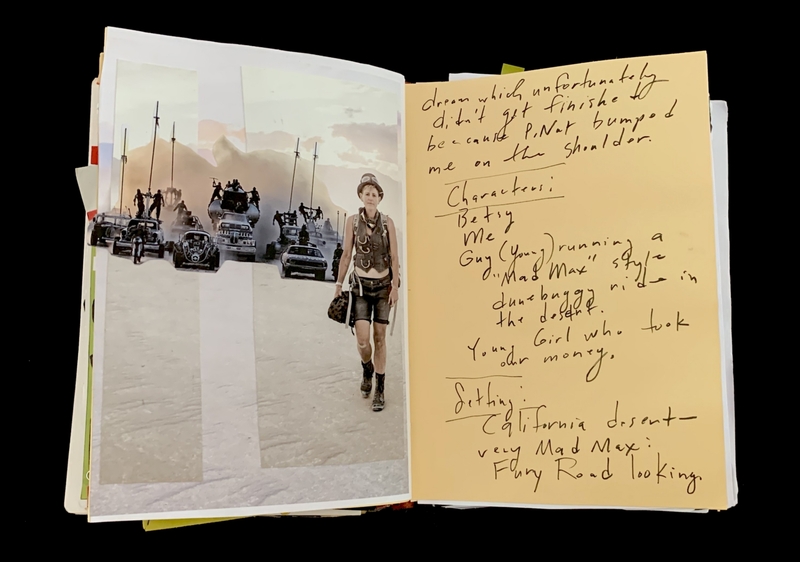 dream which unfortunately
didn't get finished
because P.Nut bumped
me on the shoulder.
Characters:
Betsy
Me
Guy (young) running a
"Mad Max" style
dunebuggy ride in
the desert.
Young Girl who took
our money.
Setting:
California desert—
very Mad Max:
Fury Road looking.